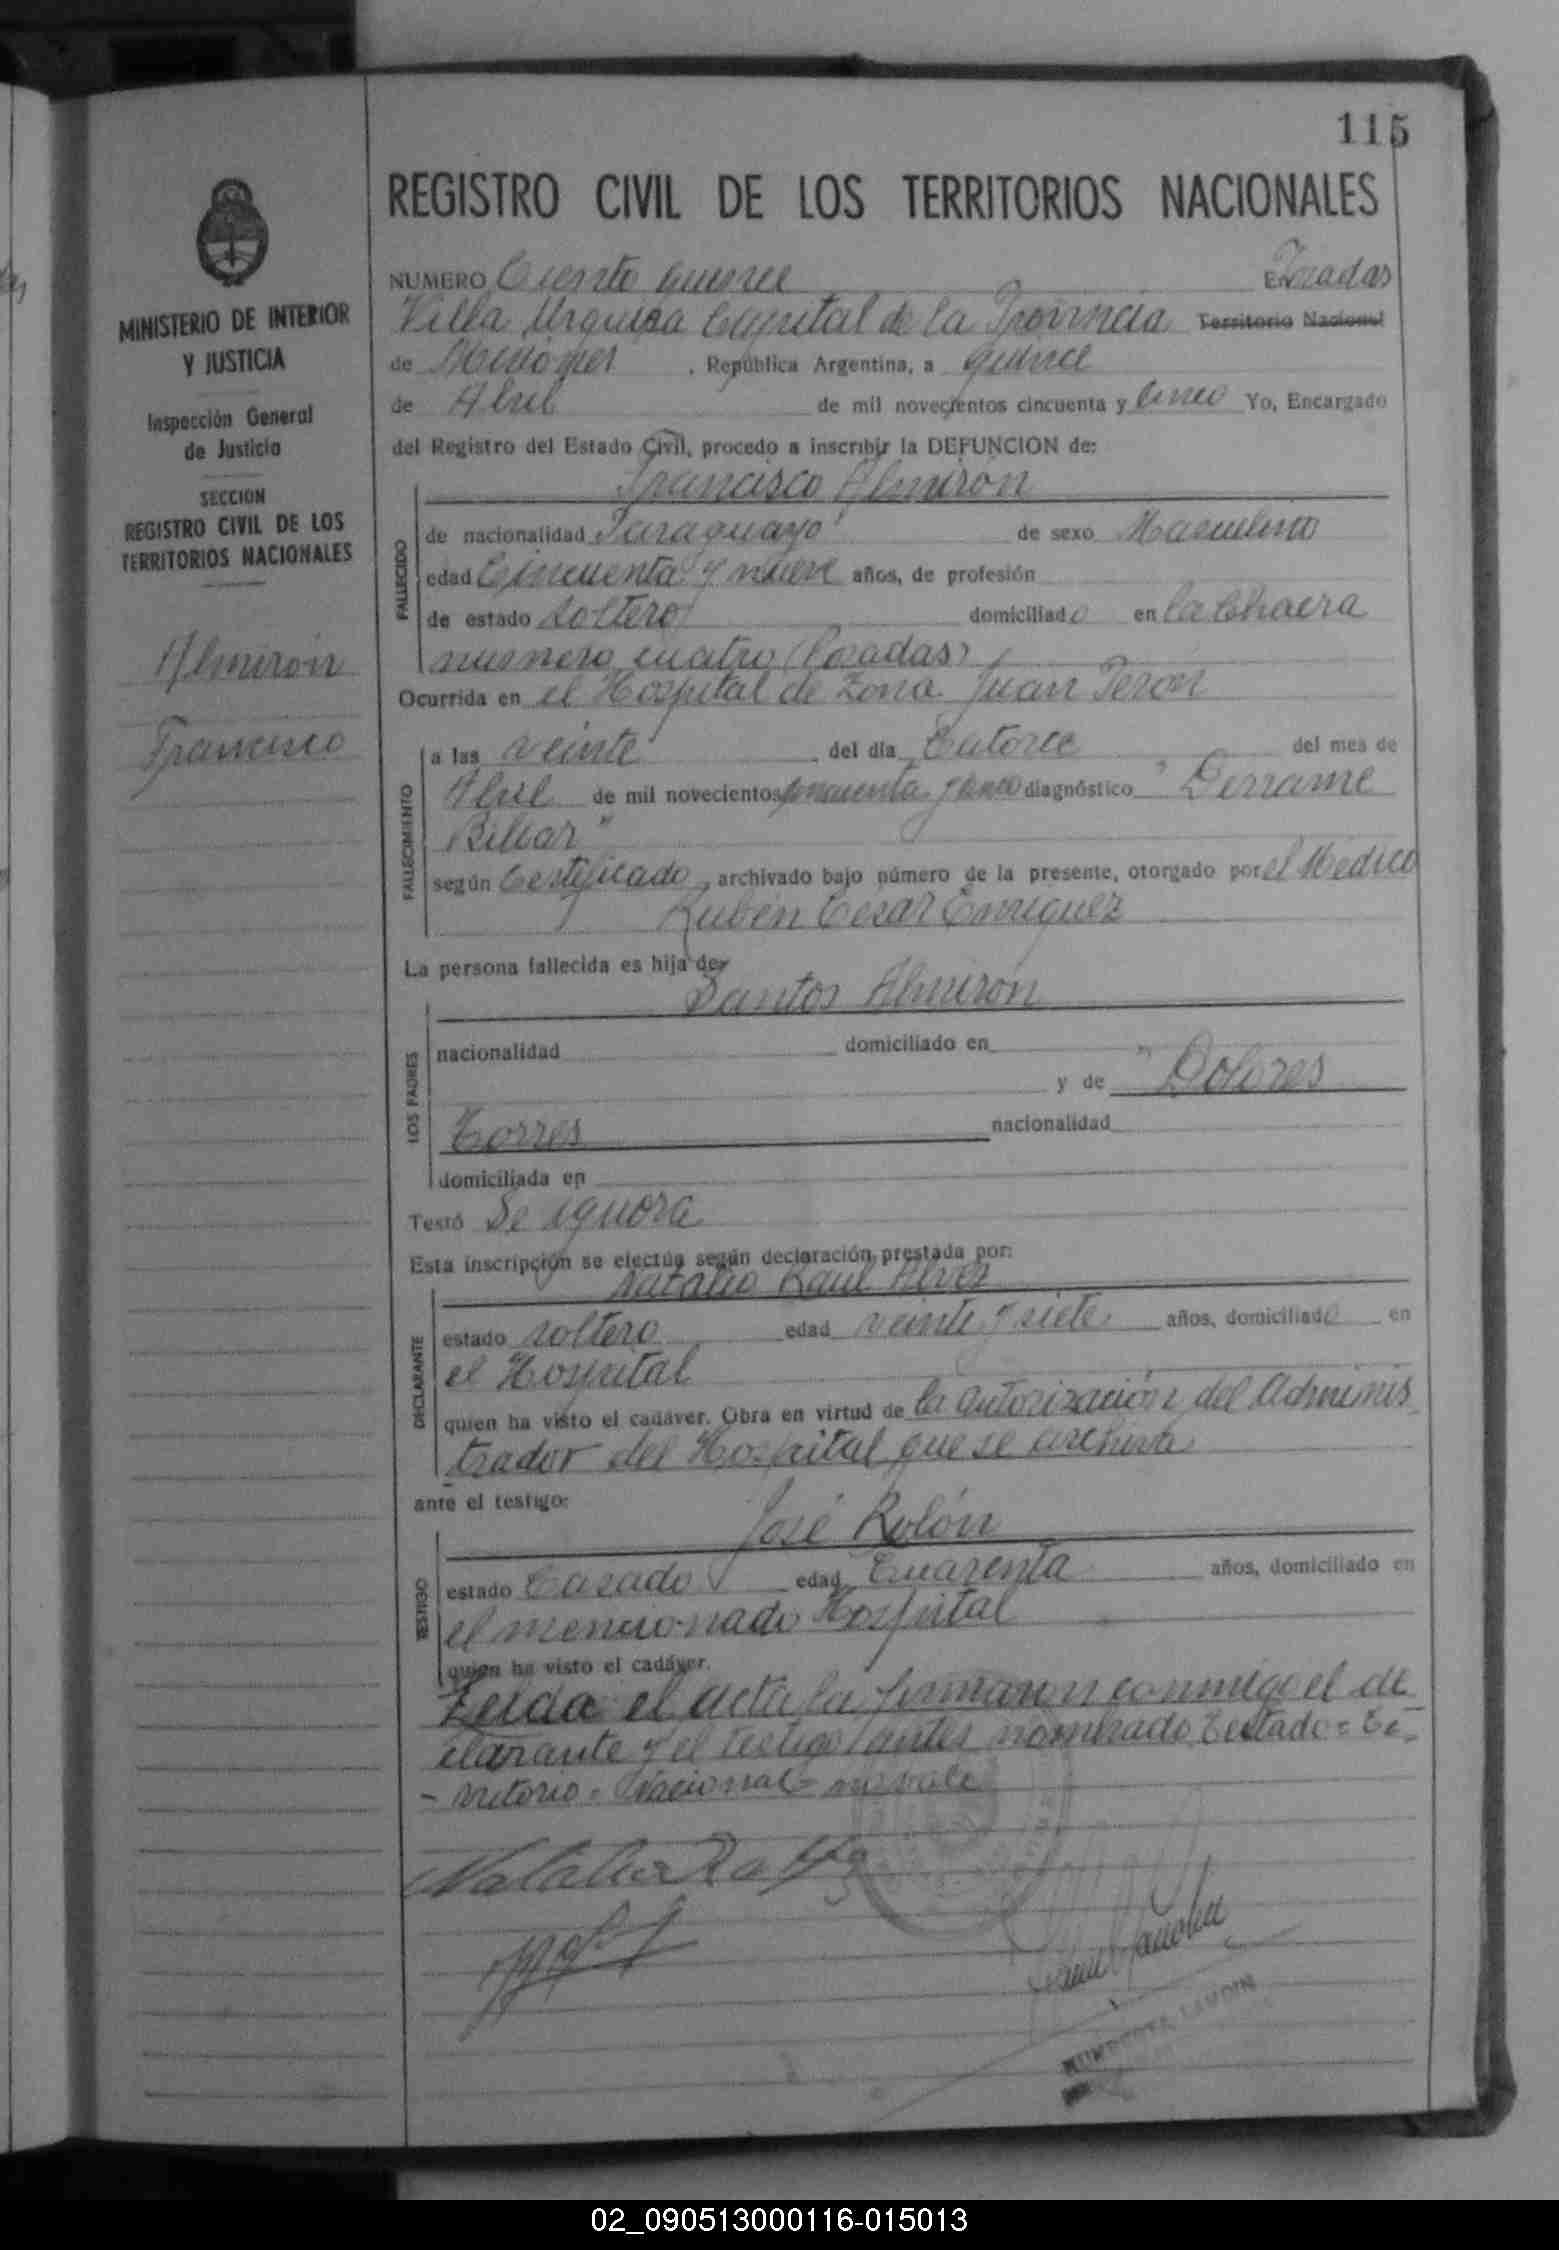 115
REGISTRO CIVIL DE LOS TERRITORIOS NACIONALES
MINISTERIO DE INTERIOR
Y JUSTICIA
Inspección General
de Justicia
SECCION
REGISTRO CIVIL DE LOS
TERRITORIOS NACIONALES
Almirón
Francisco
NUMERO Ciento quince En Posadas
Villa Urquiza Capital de la Provincia Territorio Nacional
de Misiones, República Argentina, a quince
de Abril de mil novecientos cincuenta y cinco Yo, Encargado
del Registro del Estado Civil, procedo a inscribir la DEFUNCION de:
Francisco Almirón
FALLECIDO
de nacionalidad Paraguayo de sexo Masculino
edad Cincuenta y nueve años, de profesión
de estado soltero domiciliado en la Chacra
numero cuatro (Posadas)
Ocurrida en el Hospital de Zona Juan Perón
FALLECIMIENTO
a las veinte del día Catorce del mes de
Abril de mil novecientos cincuenta y cinco diagnóstico "Derrame
Biliar"
según Certificado, archivado bajo número de la presente, otorgado por el Médico
Rubén Cesar Enriquez
La persona fallecida es hija de
LOS PADRES
Santos Almirón
nacionalidad domiciliado en
y de " Dolores
Torres nacionalidad
domiciliada en
Testó Se ignora
Esta inscripción se efectúa según declaración prestada por:
DECLARANTE
Natalio Raul Alvez
estado soltero edad veinte y siete años, domiciliado en
el Hospital
quien ha visto el cadáver. Obra en virtud de la autorización del Adminis
trador del Hospital que se archiva
ante el testigo:
TESTIGO
José Rolón
estado Casado edad Cuarenta años, domiciliado en
el mencionado Hospital
quien ha visto el cadáver.
Leida el acta la firmaron conmigo el de
clarante y el testigo antes nombrado Testado = Te-
- rritorio - Nacional = no vale
02_090513000116-015013